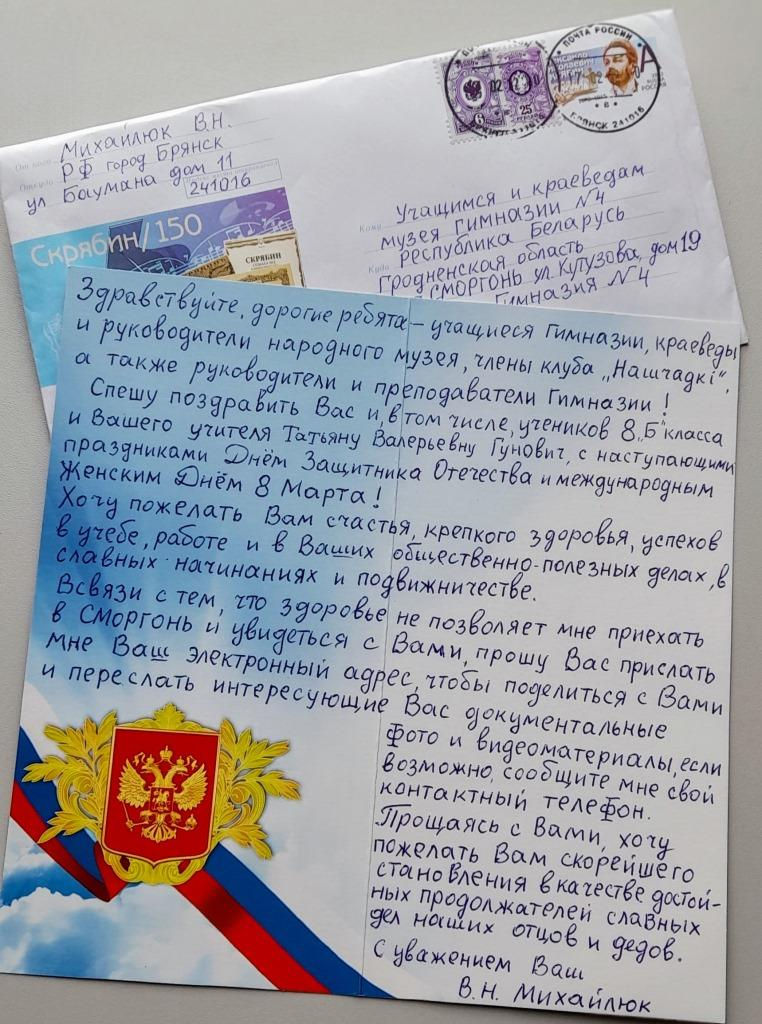 Михайлюк В.Н.
РФ город Брянск
ул Баумана дом 11
241016
От кого
Откуда
Скрябин/150
СКРЯБИН
6
25
ПОЧТА РОССИИ
БРЯНСК 241016
А
Кому
Куда
Учащимся и краеведам
музея гимназии №4
республика Беларусь
Гродненская область
СМОРГОНЬ ул. Кутузова, дом 19
Гимназия №4
Здравствуйте, дорогие ребята – учащиеся Гимназии, краеведы
и руководители народного музея, члены клуба „Нашчадкi",
а также руководители и преподаватели Гимназии!
Спешу поздравить Вас и, в том числе, учеников 8„Б" класса
и Вашего учителя Татьяну Валерьевну Гунович, с наступающими
праздниками Днём Защитника Отечества и международным
Женским Днём 8 Марта!
Хочу пожелать Вам счастья, крепкого здоровья, успехов
в учебе, работе и в Ваших общественно-полезных делах, в
славных начинаниях и подвижничестве.
Всвязи с тем, что здоровье не позволяет мне приехать
в СМОРГОНЬ и увидеться с Вами, прошу Вас прислать
мне Ваш электронный адрес, чтобы поделиться с Вами
и переслать интересующие Вас документальные
фото и видеоматериалы, если
возможно, сообщите мне свой
контактный телефон.
Прощаясь с Вами, хочу
пожелать Вам скорейшего
становления в качестве достой-
ных продолжателей славных
дел наших отцов и дедов.
С уважением Ваш
В.Н. Михайлюк